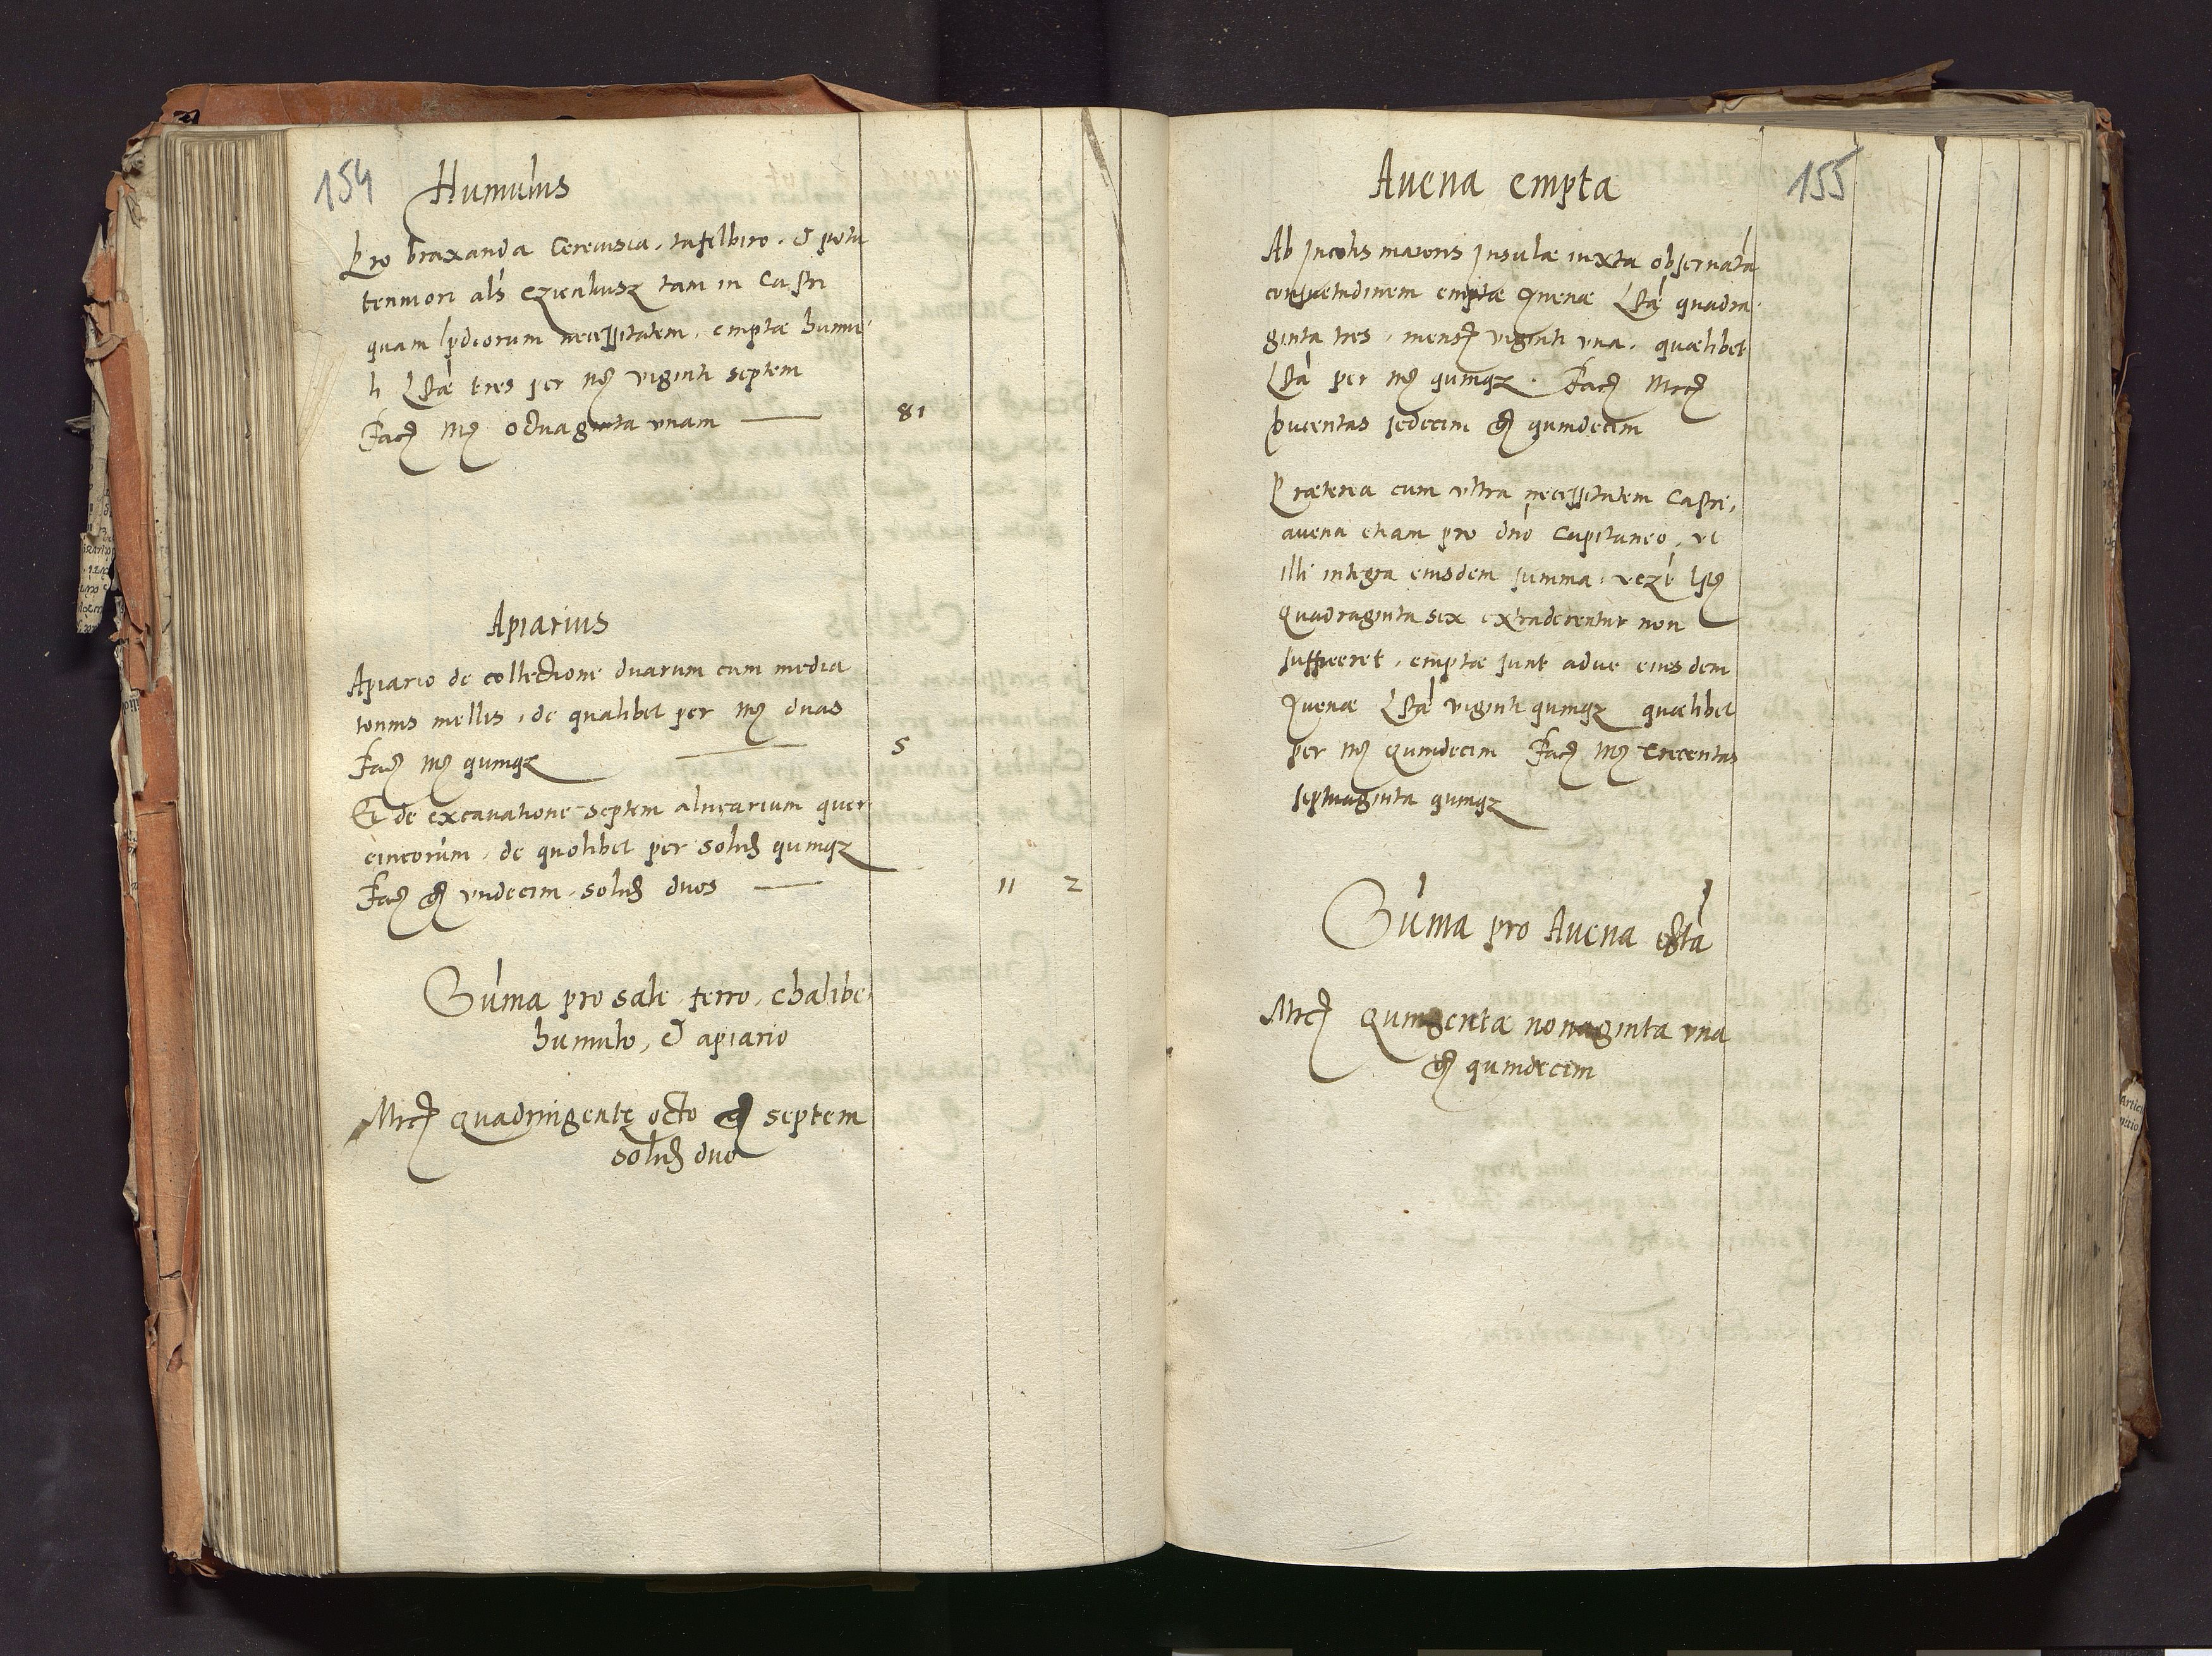 154
Humulus
Pro braxanda Cerevisia, tafelbiro, & potu
tenuiori als czienkusz tam in Castri
quam prdiorum necessitatem, emptæ humu
li Lstæ tres per mrc viginti septem
Facit mrc octuaginta unam — 81
Apiarius
Apiario de collectione duarum cum media
tonnis mellis, de qualibet per mrc duas
Facit mrc quinque — 5
Et de excavatione septem alvearium quer
cineorum, de quolibet per solid quinque
Facit gr undecim, solid duos — 11 2
Suma pro sale, ferro, chalibe,
humulo, & apiario
Mrc quadringentę octo gr septem
solid duo
155
Avena empta
Ab Incolis maioris Insulæ iuxta observatā
consuetudinem emptæ Avenæ Lstæ quadra
ginta tres, mens viginti una, quælibet
Lsta per mrc quinque. Facit Mrc
Ducentas sedecim gr quindecim
Præterea cum ultra necessitatem Castri,
avena etiam pro dnō Capitaneo, ut
illi integra eiusdem summa,
quadraginta sex extraderentur non
sufficeret, emptæ sunt aduc eiusdem
Avenæ Lstæ viginti quinque quælibet
per mrc quindecim Facit mrc trecentas
septuaginta quinque
Suma pro Avena eptā
Mrc quingentæ nonaginta una
gr quindecim